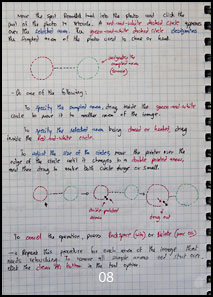 Move the Spot Removal tool into the photo and click the
part of the photo to retouch. A red-and-white dashed circle appears
over the selected area. The green-and-white dashed circle designates
the sampled area of the photo used to clone or heal.
designates the
sampled area
- Do one of the following:
To specify the sampled area, drag inside the green-and-white
circle to move it to another area of the image.
To specify the selected area being cloned or healed, drag
inside the red-and-white circle.
To adjust the size of the circles, move the pointer over the
edge of the circle until it changes to a double pointed arrow,
and then drag to make both circle larger or small.
double pointed
arrow
drag out
To cancel the operation, press Backspace (win) or Delete (mac os).
Repeat this procedure for each area of the image that
needs retouching. To remove all sample areas and start over,
click the Clear All button in the tool option
08